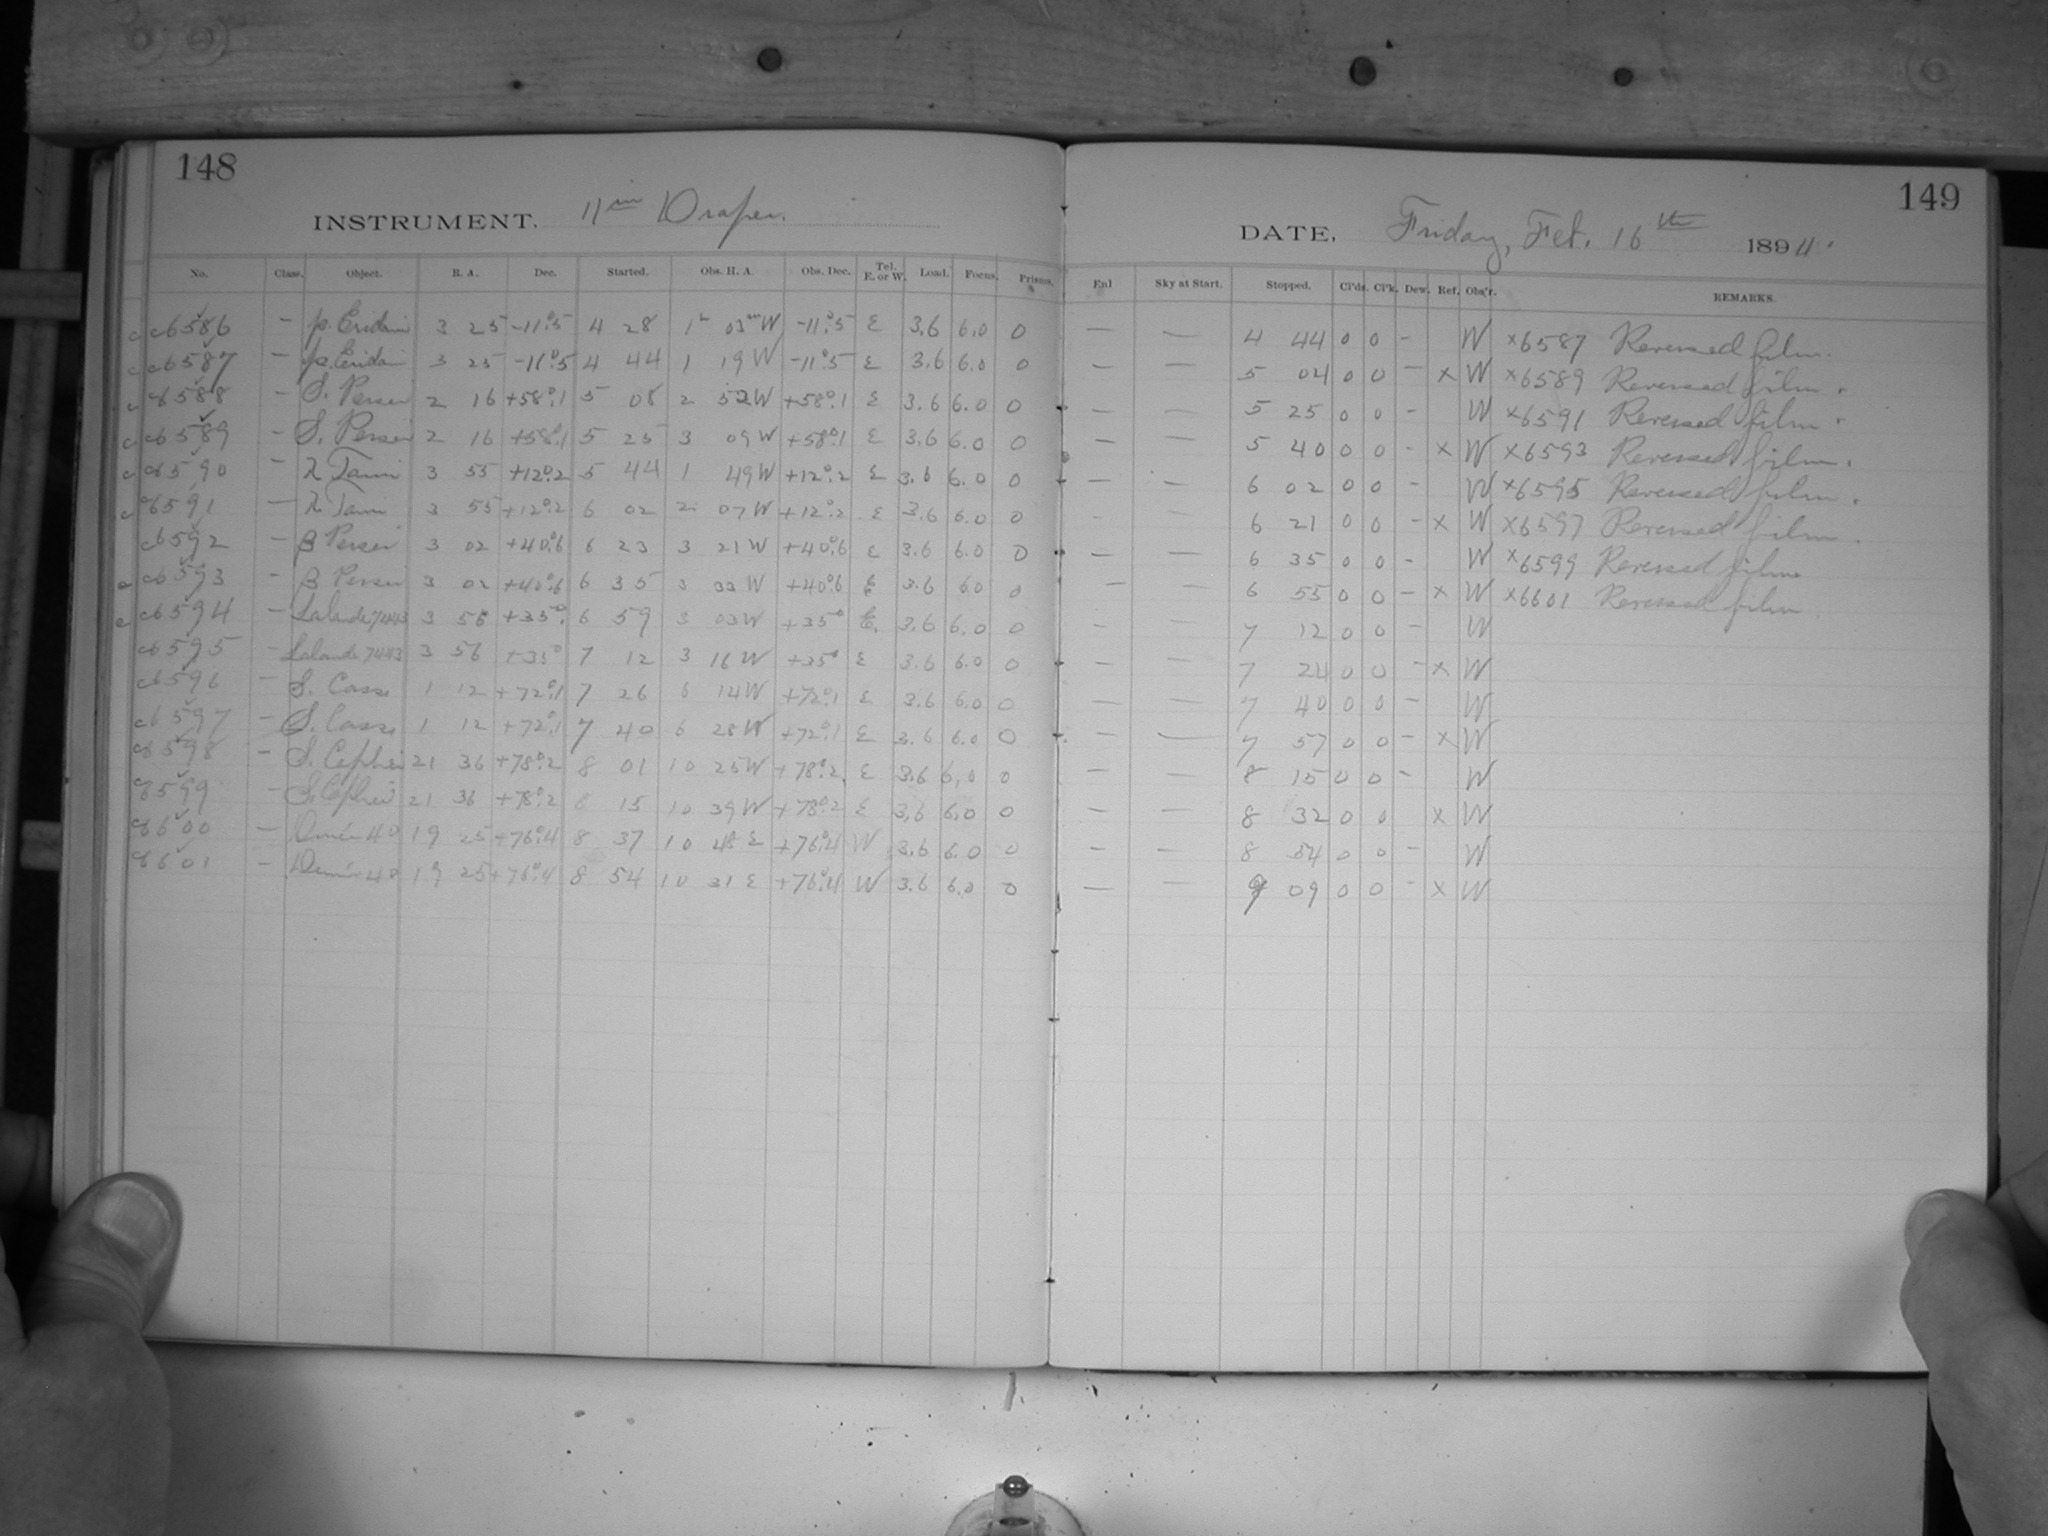 148
INSTRUMENT. 11 in Draper.
No. Class. Object. R. A. Dec. Started. Obs. H. A. Obs. Dec. Tel. E. or W. Load. Focus. Prisms.
c6586 – p. Eridani 3 25 -11°.5 4 28 1h 03m W -11°.5 E 3.6 6.0 0
c6587 – p. Eridani 3 25 -11°.5 4 44 1 19 W -11°.5 E 3.6 6.0 0
c6588 – S. Persei 2 16 +58°.1 5 08 2 52 W +58°.1 E 3.6 6.0 0
c6589 – S. Persei 2 16 +58°.1 5 25 3 09 W +58°.1 E 3.6 6.0 0
c6590 – λ Tauri 3 55 +12°.2 5 44 1 49 W +12°.2 E 3.6 6.0 0
c6591 – λ Tauri 3 55 +12°.2 6 02 2 07 W +12°.2 E 3.6 6.0 0
c6592 – β Persei 3 02 +40°.6 6 23 3 21 W +40°.6 E 3.6 6.0 0
c6593 – β Persei 3 02 +40°.6 6 35 3 33 W +40°.6 E 3.6 6.0 0
c6594 – Lalande 7443 3 56 +35° 6 59 3 03 W +35° E. 3.6 6.0 0
c6595 – Lalande 7443 3 56 +35° 7 12 3 16 W +35° E 3.6 6.0 0
c6596 – S. Cassi 1 12 +72°.1 7 26 6 14 W +72°.1 E 3.6 6.0 0
c6597 – S. Cassi 1 12 +72°.1 7 40 6 28 W +72°.1 E 3.6 6.0 0
c6598 – S. Cephei 21 36 +78°.2 8 01 10 25 W +78°.2 E 3.6 6.0 0
c6599 – S. Cephei 21 36 +78°.2 8 15 10 39 W +78°.2 E 3.6 6.0 0
c6600 – 19 25 +76°.4 8 37 10 48 E +76°.4 W 3.6 6.0 0
c6601 – 19 25 +76°.4 8 54 10 31 E +76°.4 W 3.6 6.0 0
149
DATE, Friday, Feb. 16th 1894.
Enl Sky at Start. Stopped. Cl'ds. Cl'k. Dew. Ref. Obs'r. REMARKS.
– – 4 44 0 0 – W ×6587 Reversed film.
– – 5 04 0 0 – × W ×6589 Reversed film.
– – 5 25 0 0 – W ×6591 Reversed film.
– – 5 40 0 0 – × W ×6593 Reversed film.
– – 6 02 0 0 – W ×6595 Reversed film.
– – 6 21 0 0 – × W ×6597 Reversed film.
– – 6 35 0 0 – W ×6599 Reversed film.
– – 6 55 0 0 – × W ×6601 Reversed film.
– – 7 12 0 0 – W
– – 7 24 0 0 – × W
– – 7 40 0 0 – W
– – 7 57 0 0 – × W
– – 8 15 0 0 – W
– – 8 32 0 0 × W
– – 8 54 0 0 – W
– – 9 09 0 0 – × W